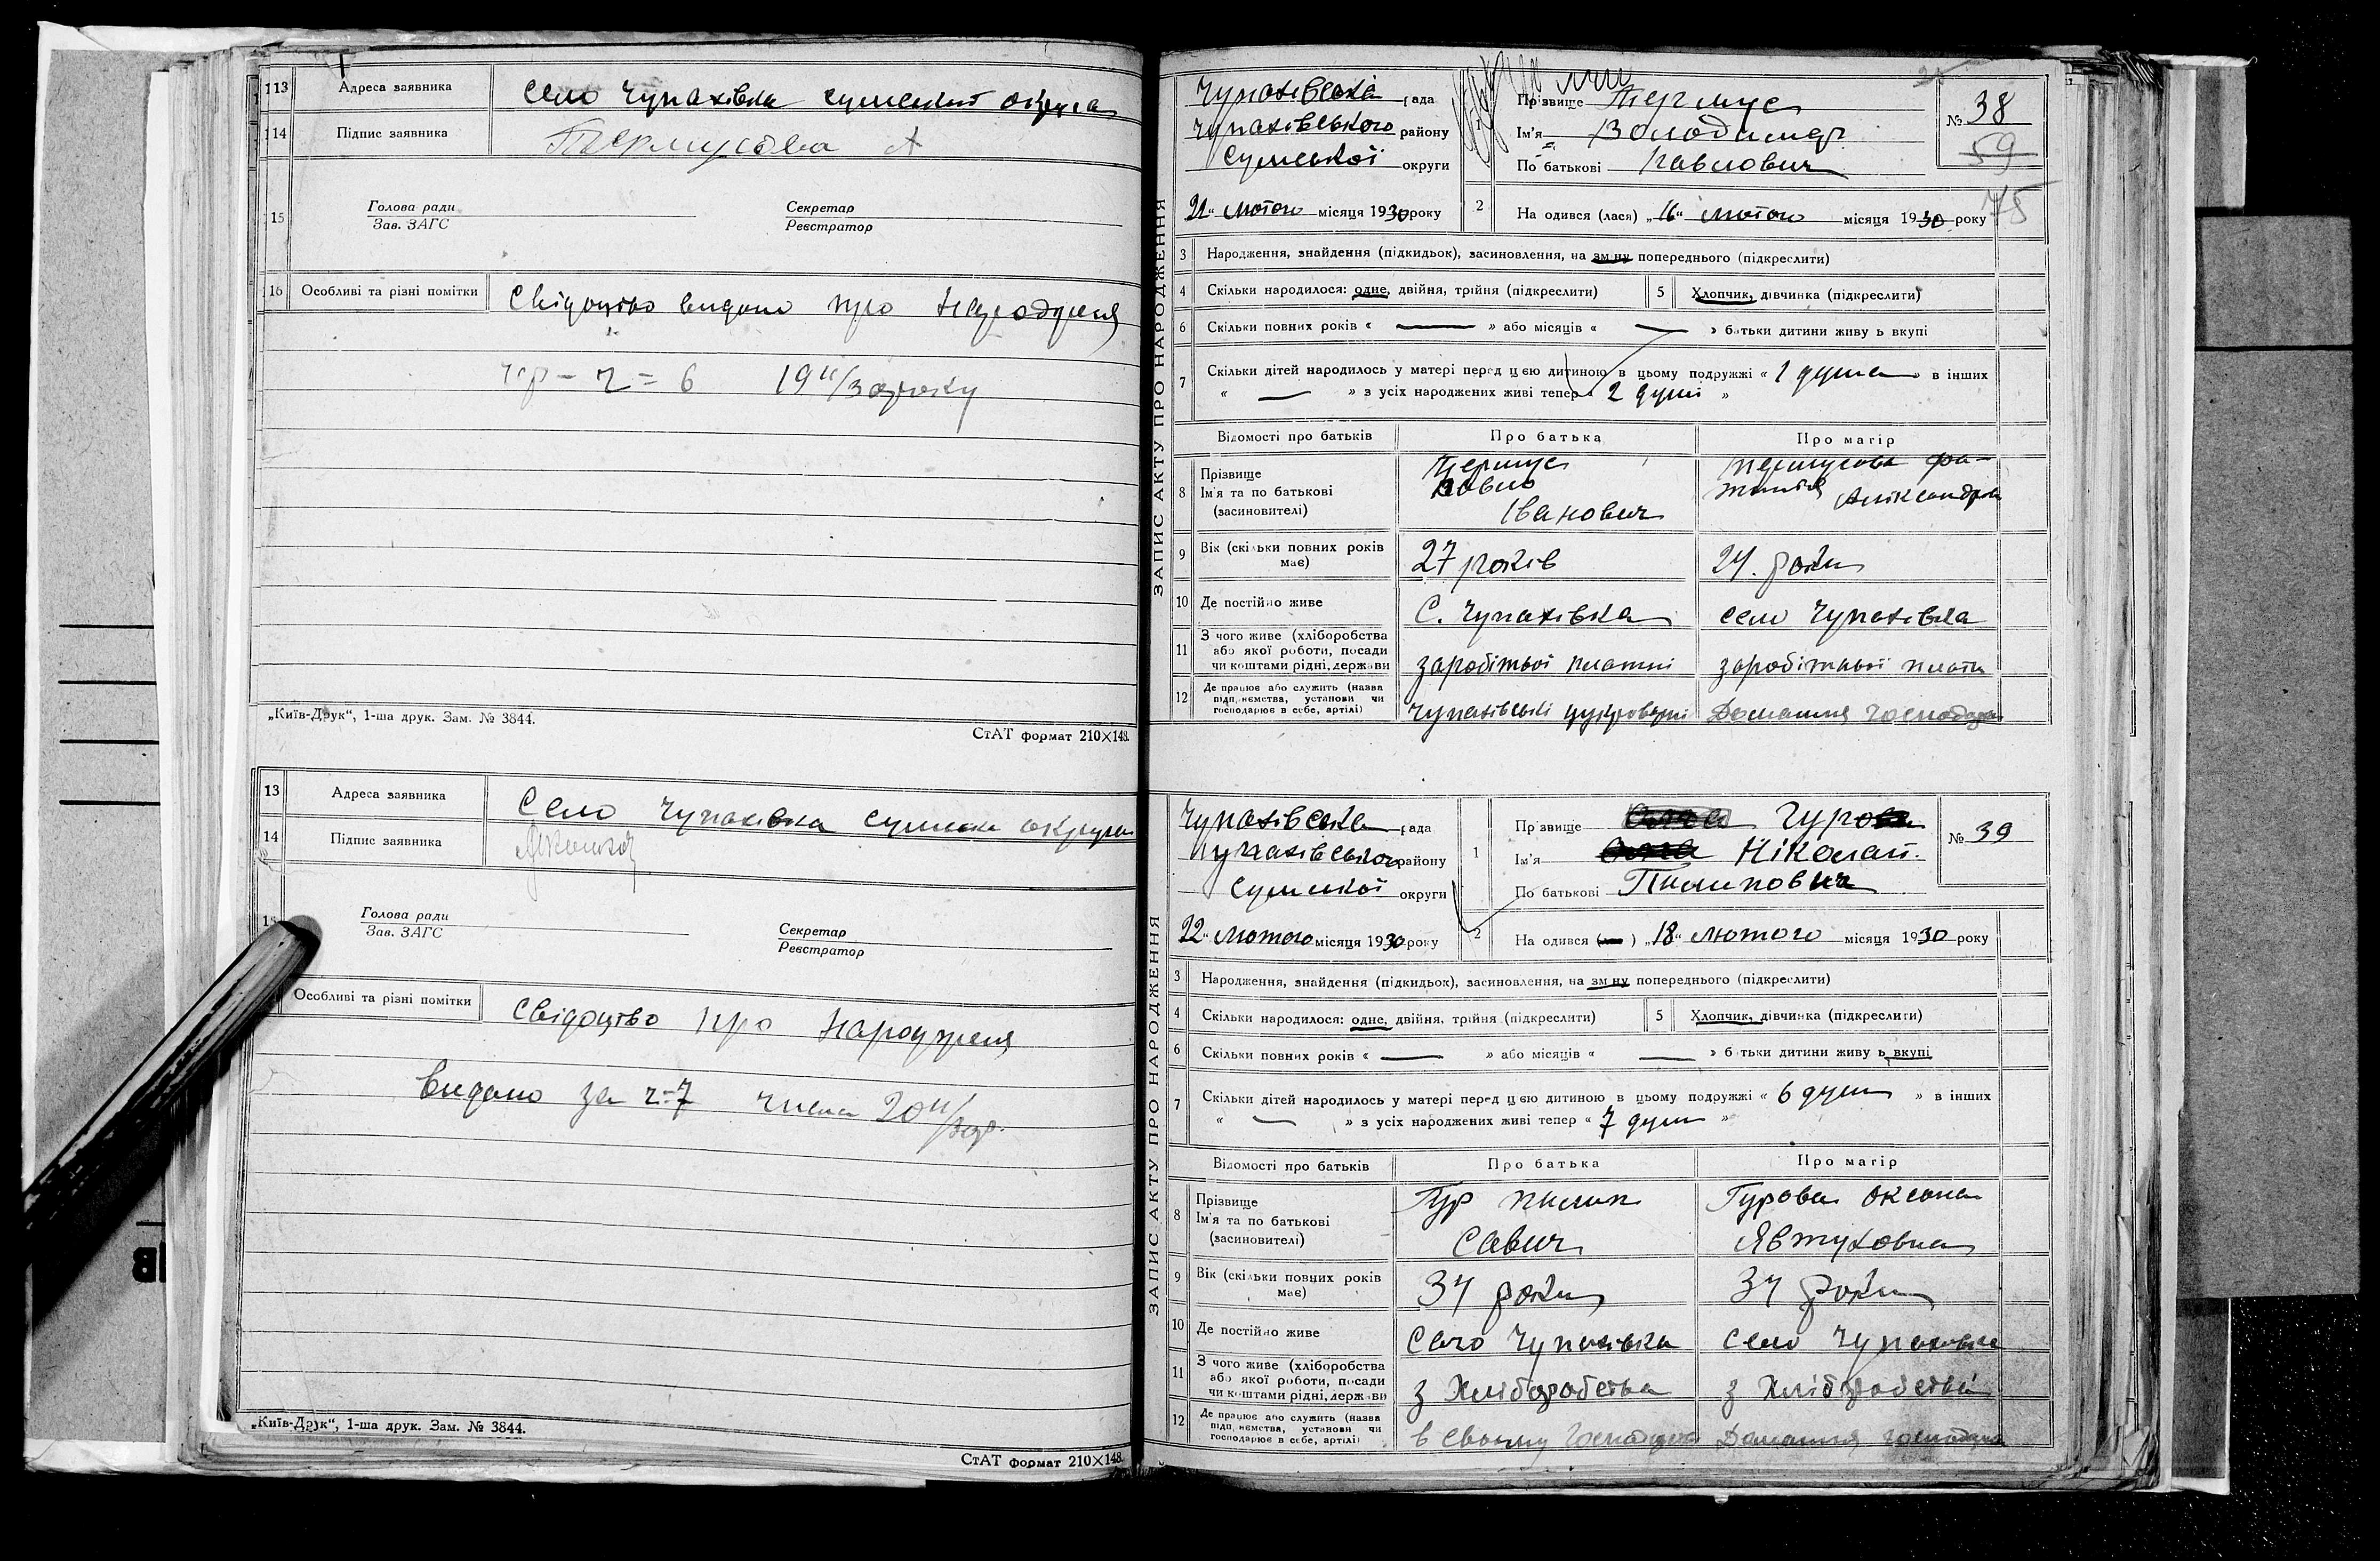 13 Адреса заявника село Чупахівка сумської округи
14 Підпис заявника Пермусова А
15 Голова ради Секретар
Зав. ЗАГС Реєстратор
16 Особливі та різні помітки Свідоцтво видано про народженя
ч = 6 19 II/30 року
„Київ-Друк“, 1-ша друк. Зам. № 3844.
СтАТ формат 210×148.
13 Адреса заявника Село Чупахівка сумська округи
14 Підпис заявника
Голова ради Секретар
Зав. ЗАГС Реєстратор
Особливі та різні помітки Свідоцтво про народженя
видано за ч=7 числа 20 II/30р.
„Київ-Друк“, 1-ша друк. Зам. № 3844.
СтАТ формат 210×148.
ЗАПИС АКТУ ПРО НАРОДЖЕННЯ
Чупахівська рада
Чупахівського району
Сумської округи
21“ лютого місяця 1930 року
Прізвище Пермус
Ім'я Володимир
По батькові Павлович
№ 38
59
75
2 На одився (лася) „16“ лютого місяця 1930 року
3 Народження, знайдення (підкидьок), засиновлення, на зм ну попереднього (підкреслити)
4 Скільки народилося: одне, двійня, трійня (підкреслити) 5 Хлопчик, дівчинка (підкреслити)
6 Скільки повних років « — » або місяців « — » батьки дитини живу ь вкупі
7 Скільки дітей народилось у матері перед цією дитиною в цьому подружжі « 1 душа » в інших
« — » з усіх народжених живі тепер « 2 душі »
Відомості про батьків Про батька Про матір
8 Прізвище Пермус Пермусова
Ім'я та по батькові Павло
(засиновителі) Іванович
9 Вік (скільки повних років має) 27 років 24. роки
10 Де постійно живе С. Чупахівка село Чупахівка
11 З чого живе (хліборобства
або якої роботи, посади
чи коштами рідні, держави заробітної платні заробітньої плати
12 Де працює або служить (назва
підприємства, установи чи
господарює в себе, артілі) Чупахівські цукроварні Домашня господарка
ЗАПИС АКТУ ПРО НАРОДЖЕННЯ
Чупахівська рада
Чупахівського району
Сумської округи
22“ лютого місяця 1930 року
1 Прізвище Гурова
Ім'я Ніколай.
По батькові Пилипович
№ 39
2 На одився ( ) „18“ лютого місяця 1930 року
3 Народження, знайдення (підкидьок), засиновлення, на зм ну попереднього (підкреслити)
4 Скільки народилося: одне, двійня, трійня (підкреслити) 5 Хлопчик, дівчинка (підкреслити)
6 Скільки повних років « — » або місяців « — » батьки дитини живу ь вкупі
7 Скільки дітей народилось у матері перед цією дитиною в цьому подружжі « 6 душ » в інших
« — » з усіх народжених живі тепер « 7 душ »
Відомості про батьків Про батька Про матір
8 Прізвище Гур Пилип Гурова Оксана
Ім'я та по батькові
(засиновителі) Савич Явтуховна
9 Вік (скільки повних років має) 34 роки 34 роки
10 Де постійно живе Село Чупахівка Село Чупахівка
11 З чого живе (хліборобства
або якої роботи, посади
чи коштами рідні, держави з Хліборобства з Хліборобства
12 Де працює або служить (назва
підприємства, установи чи
господарює в себе, артілі) в своему господар Домашня господарка